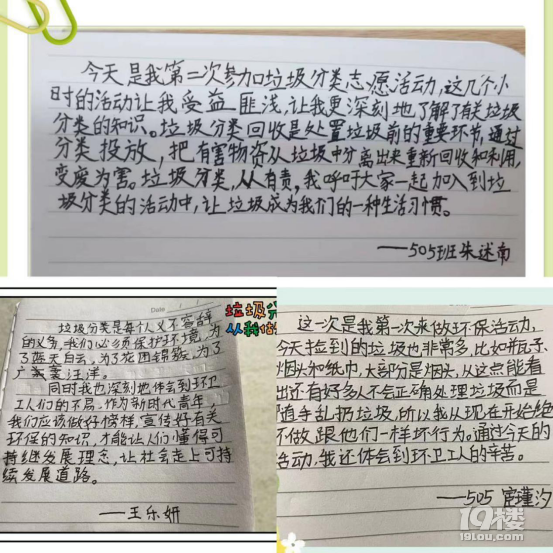 今天是我第二次参加垃圾分类志愿活动，这几个小
时的活动让我受益匪浅，让我更深刻地了解了有关垃圾
分类的知识。垃圾分类回收是处置垃圾前的重要环节，通过
分类投放，把有害物资从垃圾中分离出来重新回收和利用，
变废为害。垃圾分类，从有责，我呼吁大家一起加入到垃
圾分类的活动中，让垃圾成为我们的一种生活习惯。
——505班朱述南
Date
垃圾分
从我做
垃圾分类是每个人义不容辞
的义务，我们必须保护环境，为
了蓝天白云，为了花团锦簇，为了
广袤汪洋。
同时我也深刻地体会到环卫
工人们的不易，作为新时代青年，
我们应该做好榜样，宣传好有关
环保的知识，才能让人们懂得可
持继发展理念，让社会走上可持
续发展道路。
——王乐妍
这一次是我第一次来做环保活动，
今天捡到的垃圾也非常多，比如并瓦子、
烟头和纸巾，大部分是烟头，从这点能看
出还有好多人不会正确处理垃圾而是
随手乱扔垃圾，所以我从现在开始绝
不做跟他们一样坏行为。通过今天的
活动，我还体会到环卫工人的辛苦。
——505 瑾汐
19楼
19lou.com